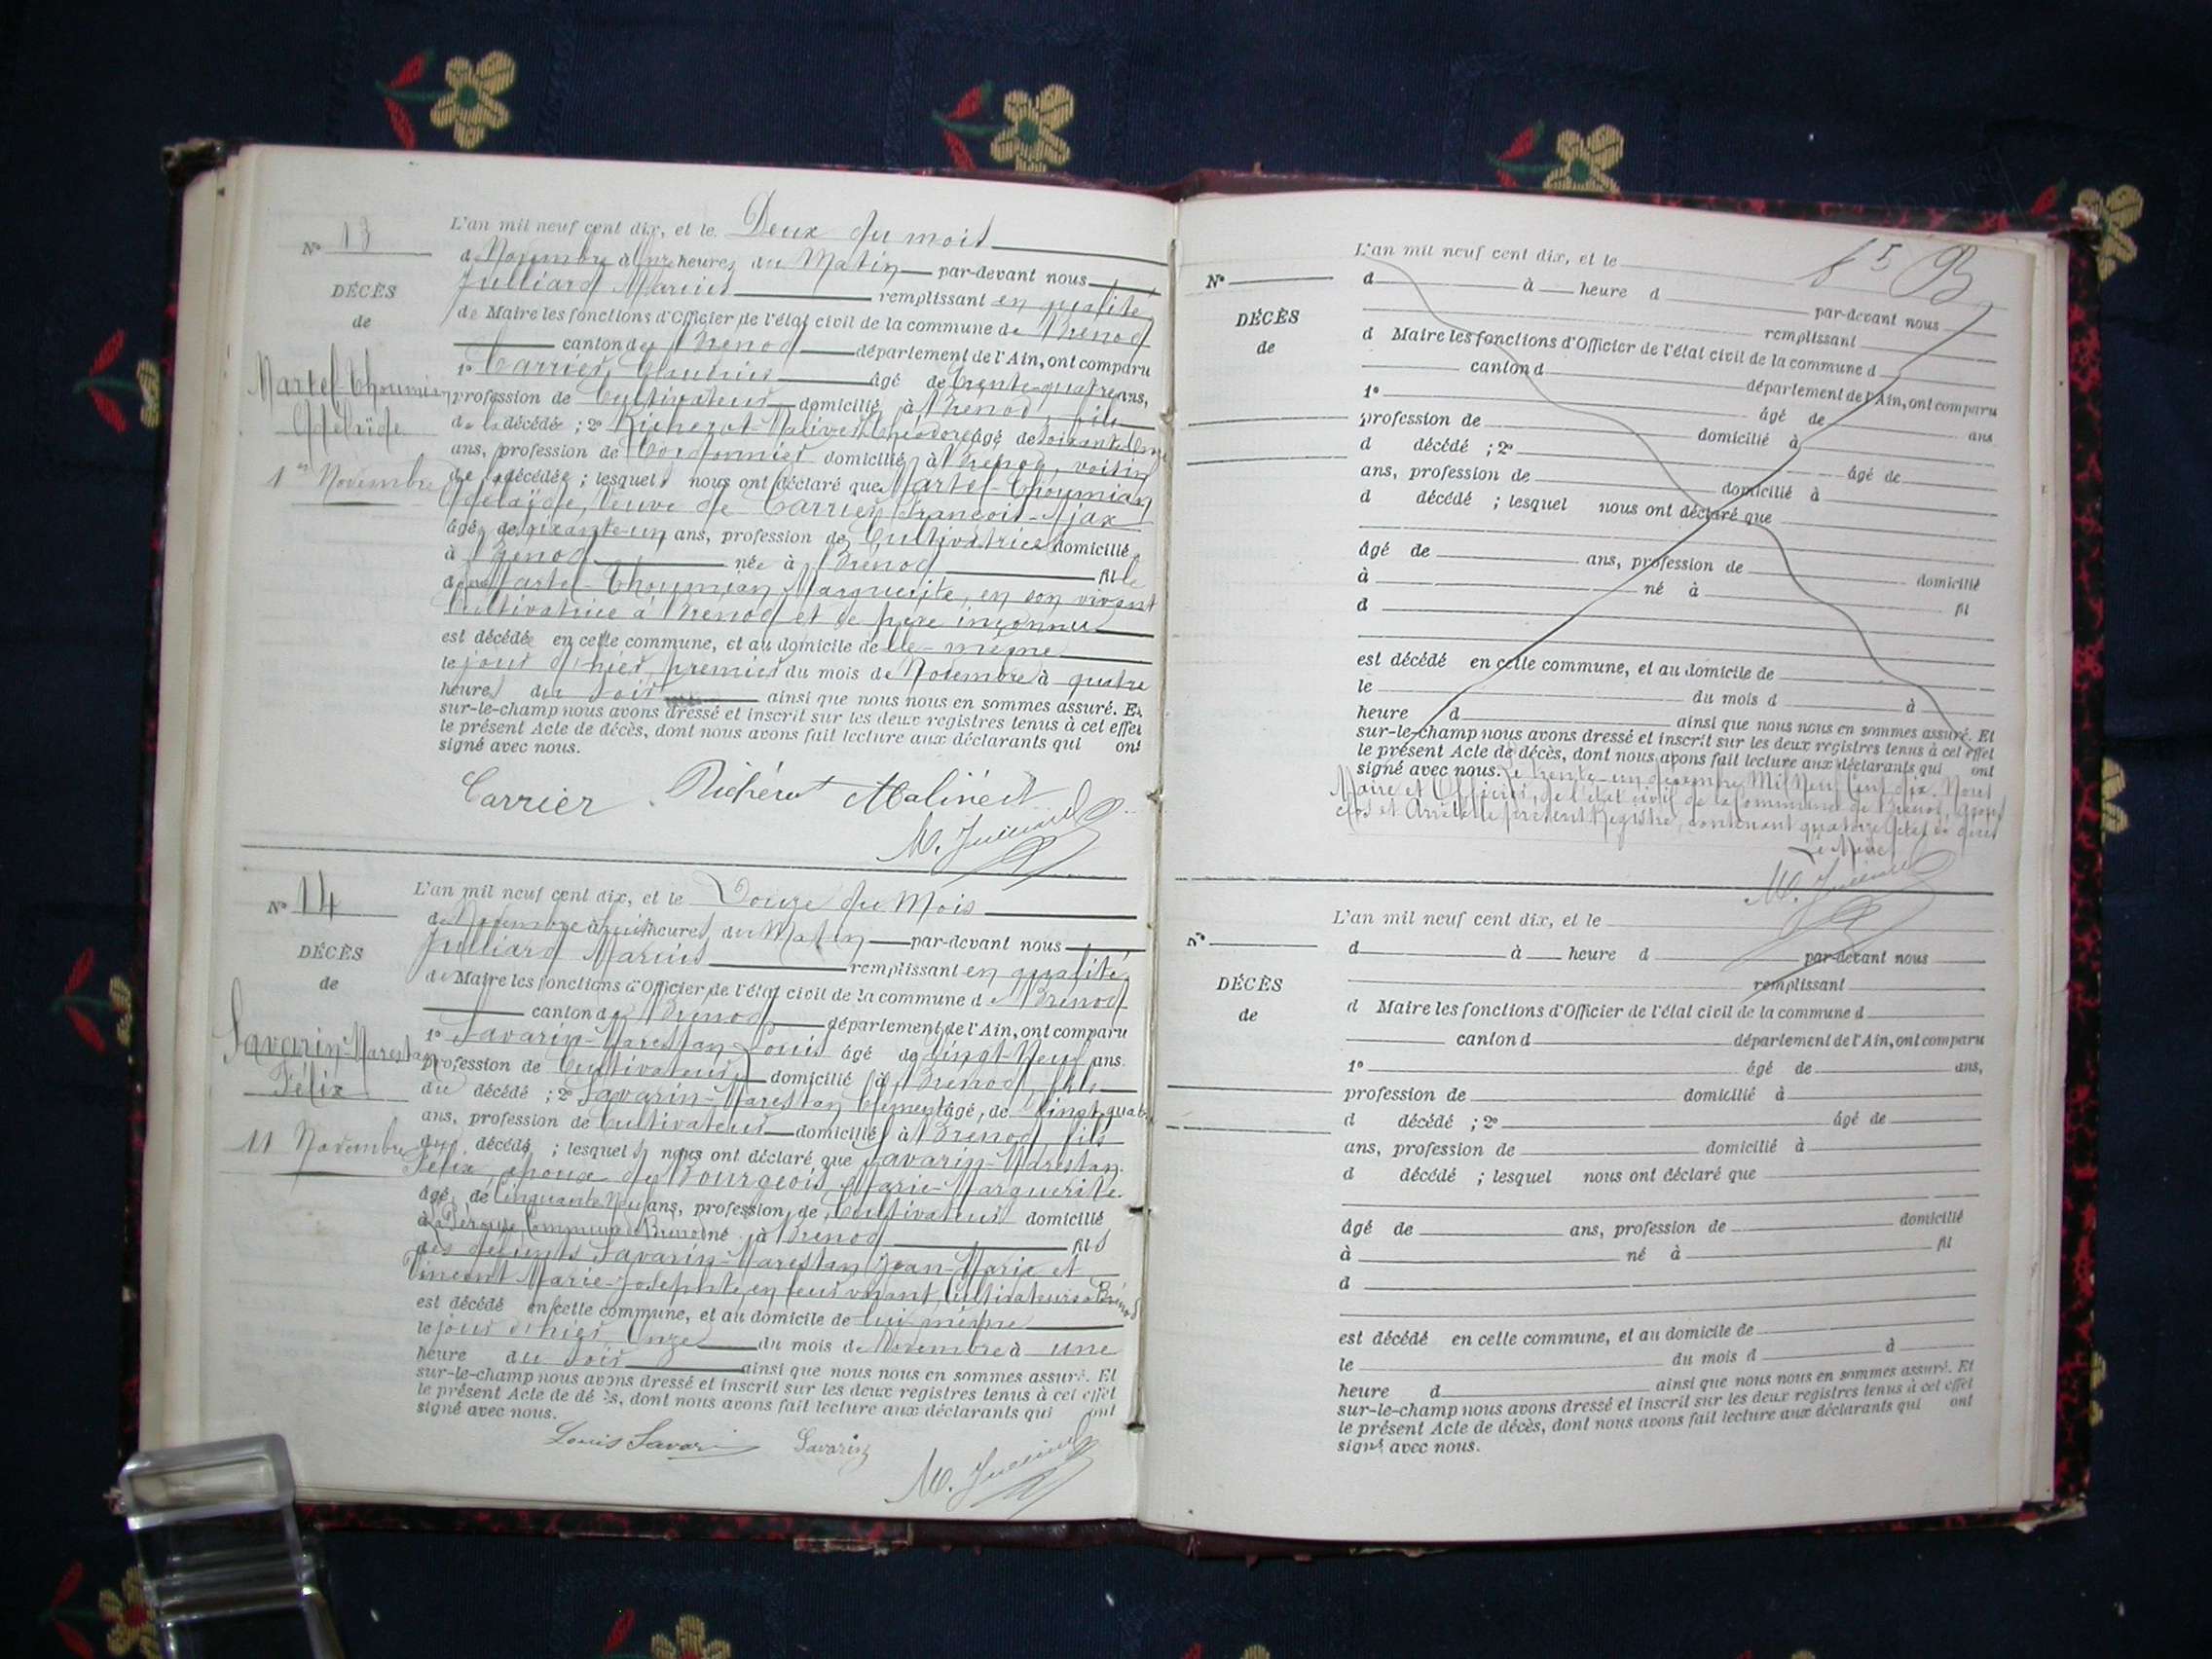 N° 13
DÉCÈS
de
Martel-Thoumian
Adélaïde
1er Novembre
L'an mil neuf cent dix, et le Deux du mois
de Novembre à heures du Matin par-devant nous
Julliard Marius remplissant en qualité
de Maire les fonctions d'Officier de l'état civil de la commune de Brénod
canton de Brénod département de l'Ain, ont comparu
1° Carrier Claudius âgé de trente-quatre ans,
profession de Cultivateur domicilié à Brénod, fils
de la décédée ; 2° Richerot-Malivert Théodore âgé de soixante
ans, profession de Cordonnier domicilié à Brénod, voisin
de la décédée ; lesquels nous ont déclaré que Martel-Thoumian
Adélaïde, Veuve de Carrier François-Ajax
âgée de soixante-un ans, profession de Cultivatrice domiciliée
à Brénod née à Brénod fille
de Martel-Thoumian Marguerite, en son vivant
Cultivatrice à Brénod et de père inconnu
est décédée en cette commune, et au domicile de elle-même
le jour d'hier, premier du mois de Novembre à quatre
heures du soir ainsi que nous nous en sommes assuré. Et
sur-le-champ nous avons dressé et inscrit sur les deux registres tenus à cet effet
le présent Acte de décès, dont nous avons fait lecture aux déclarants qui ont
signé avec nous.
Carrier Richérot Malivert
M. Julliard
N° 14
DÉCÈS
de
Savarin-Marestan
Félix
11 Novembre
L'an mil neuf cent dix, et le Douze du Mois
de Novembre à huit heures du Matin par-devant nous
Julliard Marius remplissant en qualité
de Maire les fonctions d'Officier de l'état civil de la commune de Brénod
canton de Brénod département de l'Ain, ont comparu
1° Savarin-Marestan Louis âgé de Vingt-Neuf ans.
profession de Cultivateur domicilié à Brénod, fils
du décédé ; 2° Savarin-Marestan Clément âgé, de Vingt quatre
ans, profession de Cultivateur domicilié à Brénod, fils
du décédé ; lesquels nous ont déclaré que Savarin-Marestan
Félix époux de Bourgeois Marie-Marguerite
âgé de Cinquante Neuf ans, profession de Cultivateur domicilié
à Commune de Brénod né à Brénod fils
des défunts Savarin-Marestan Jean-Marie et
Vincent Marie-Josephte, en leur vivant Cultivateurs à Brénod
est décédé en cette commune, et au domicile de lui même
le jour d'hier, Onze du mois de Novembre à une
heure du soir ainsi que nous nous en sommes assuré. Et
sur-le-champ nous avons dressé et inscrit sur les deux registres tenus à cet effet
le présent Acte de dé ès, dont nous avons fait lecture aux déclarants qui ont
signé avec nous.
Louis Savarin Savarin
M. Julliard
L'an mil neuf cent dix, et le
N°
DÉCÈS
de
d à heure d par-devant nous
remplissant
d Maire les fonctions d'Officier de l'état civil de la commune d
canton d département de l'Ain, ont comparu
1° âgé de ans
profession de domicilié à
d décédé ; 2° âgé de
ans, profession de domicilié à
d décédé ; lesquel nous ont déclaré que
âgé de ans, profession de domicilié
à né à fil
d
est décédé en cette commune, et au domicile de
le du mois d à
heure d ainsi que nous nous en sommes assuré. Et
sur-le-champ nous avons dressé et inscrit sur les deux registres tenus à cet effet
le présent Acte de décès, dont nous avons fait lecture aux déclarants qui ont
signé avec nous. Le trente-un décembre Mil Neuf Cent dix. Nous
Maire et Officier de l'état civil de la Commune de Brénod, avons
clos et Arrêté le présent Registre, contenant quatorze Actes de décès
Le Maire
M. Julliard
L'an mil neuf cent dix, et le
N°
DÉCÈS
de
d à heure d par-devant nous
remplissant
d Maire les fonctions d'Officier de l'état civil de la commune d
canton d département de l'Ain, ont comparu
1° âgé de ans,
profession de domicilié à
d décédé ; 2° âgé de
ans, profession de domicilié à
d décédé ; lesquel nous ont déclaré que
âgé de ans, profession de domicilié
à né à fil
d
est décédé en cette commune, et au domicile de
le du mois d à
heure d ainsi que nous nous en sommes assuré. Et
sur-le-champ nous avons dressé et inscrit sur les deux registres tenus à cet effet
le présent Acte de décès, dont nous avons fait lecture aux déclarants qui ont
signé avec nous.